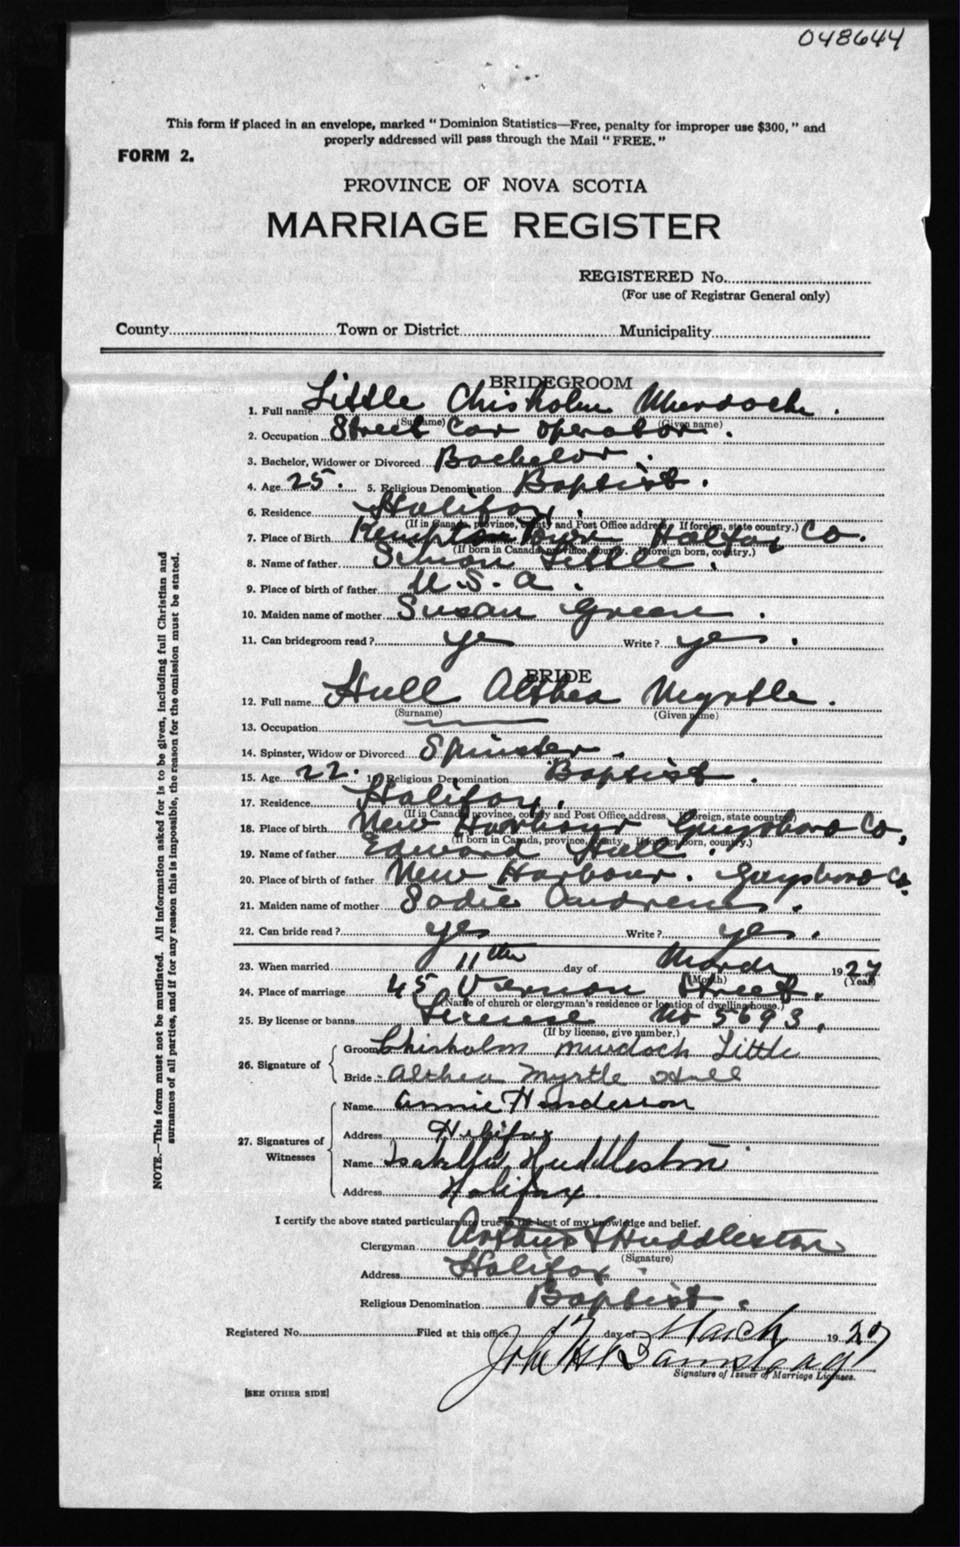 048644
This form if placed in an envelope, marked "Dominion Statistics—Free, penalty for improper use $300," and
properly addressed will pass through the Mail "FREE."
FORM 2.
PROVINCE OF NOVA SCOTIA
MARRIAGE REGISTER
REGISTERED No.
(For use of Registrar General only)
County Town or District Municipality
BRIDEGROOM
1. Full name Little Chisholm Murdoch.
(Surname) (Given name)
2. Occupation Street Car operator.
3. Bachelor, Widower or Divorced Bachelor.
4. Age 25. 5. Religious Denomination Baptist.
6. Residence Halifax.
(If in Canada, province, county and Post Office address. If foreign, state country.)
7. Place of Birth Halifax Co.
(If born in Canada, province, county. If foreign born, country.)
8. Name of father Simon Little.
9. Place of birth of father U.S.A.
10. Maiden name of mother Susan Green.
11. Can bridegroom read? ye Write? yes.
BRIDE
12. Full name Hull Althea Myrtle.
(Surname) (Given name)
13. Occupation
14. Spinster, Widow or Divorced Spinster.
15. Age 22. 16. Religious Denomination Baptist.
17. Residence Halifax.
(If in Canada, province, county and Post Office address. If foreign, state country)
18. Place of birth New Harbour Guysboro Co,
(If born in Canada, province, county. If foreign born, country.)
19. Name of father Edward Hull.
20. Place of birth of father New Harbour. Guysboro Co.
21. Maiden name of mother Sadie Andrews.
22. Can bride read? yes Write? yes.
23. When married 11th day of March 1927
(Month) (Year)
24. Place of marriage 45 Vernon Street.
(Name of church or clergyman's residence or location of dwelling house.)
25. By license or banns License No 5693.
(If by license, give number.)
26. Signature of
Groom Chisholm Murdoch Little
Bride Althea Myrtle Hull
27. Signatures of Witnesses
Name Annie Henderson
Address Halifax
Name Isabella Huddleston
Address Halifax.
I certify the above stated particulars are true to the best of my knowledge and belief.
Clergyman Arthur Huddleston
(Signature)
Address Halifax.
Religious Denomination Baptist.
Registered No. Filed at this office 17 day of March 1927
Signature of Issuer of Marriage Licenses.
[SEE OTHER SIDE]
NOTE.—This form must not be mutilated. All information asked for is to be given, including full Christian and
surnames of all parties, and if for any reason this is impossible, the reason for the omission must be stated.